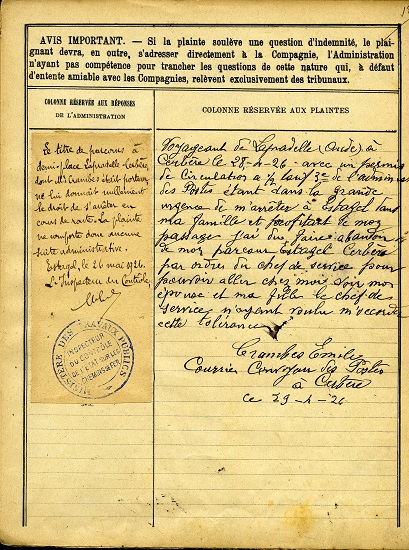 AVIS IMPORTANT. — Si la plainte soulève une question d'indemnité, le plai-
gnant devra, en outre, s'adresser directement à la Compagnie, l'Administration
n'ayant pas compétence pour trancher les questions de cette nature qui, à défaut
d'entente amiable avec les Compagnies, relèvent exclusivement des tribunaux.
COLONNE RÉSERVÉE AUX RÉPONSES
DE L'ADMINISTRATION
Le titre de parcours à
demi-place Lapradelle-Cerbère,
dont M. Crambes était porteur
ne lui donnait nullement
le droit de s'arrêter en
cours de route. La plainte
ne comporte donc aucune
suite administrative.
Estagel, le 26 mai 1926.
L'Inspecteur du Contrôle,
MINISTÈRE DES TRAVAUX PUBLICS
INSPECTEUR
DU CONTRÔLE
DE L'ETAT SUR LES
CHEMINS DE FER
COLONNE RÉSERVÉE AUX PLAINTES
Voyageant de Lapradelle (Aude) à
Cerbère le 28-4-26 - avec un permis
de Circulation a ½ tarif 3e de l'adminis
des Postes étant dans la grande
urgence de m'arrêter à Estagel
ma famille et profitant de mon
passage j'ai du faire abandon
de mon parcour Estagel Cerbère
par ordres du chef de service pour
pouvoir aller chez moi voir mon
épouse et ma fille le chef de
service n'ayant voulu m'accorder
cette tolérance
Crambes Emile
Courrier Convoyeur des Postes
à Cerbère
ce 29-4-26